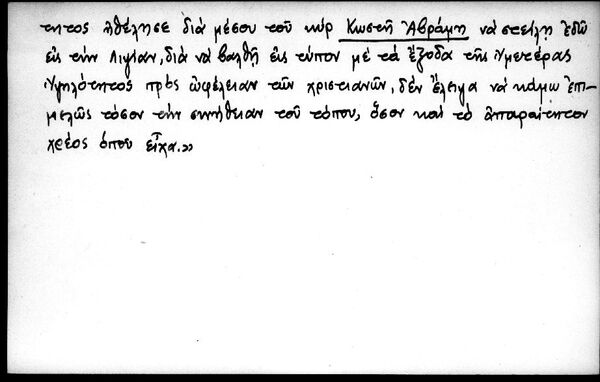 τητος ἠθέλησε διὰ μέσου τοῦ κὺρ Κωστῆ Ἀβράμη νὰ στείλῃ ἐδῶ
εἰς τὴν Λιψίαν, διὰ νὰ βαλθῇ εἰς τύπον μὲ τὰ ἔξοδα τῆς Ὑμετέρας
Ὑψηλότητος πρὸς ὠφέλειαν τῶν χριστιανῶν, δὲν ἔλειψα νὰ κάμω ἐπι-
μελῶς τόσον τὴν συνήθειαν τοῦ τόπου, ὅσον καὶ τὸ ἀπαραίτητον
χρέος ὁποῦ εἶχα.»